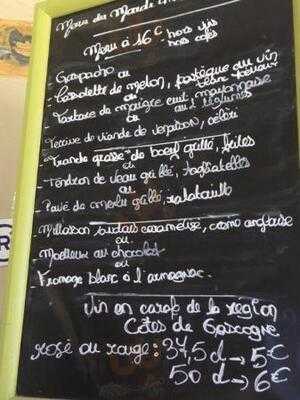 Menu du Mardi
Menu à 16 € hors vin
hors café
Gaspacho
ou
- Cassolette de melon, pastèque au vin
ou
- Tartare de maigre cuit, mayonnaise
ou aux légumes
- Terrine de viande de venaison, céleri
- Viande grosse de boeuf grillé, frites
ou
- Tendron de veau grillé, tagliatelles
ou
- Pavé de merlu grillé, ratatouille
Millasson landais caramélisé, crème anglaise
ou
Moelleux au chocolat
ou
Fromage blanc à l'armagnac.
Vin en carafe de la région
Côtes de Gascogne
rosé ou rouge : 37,5 d → 5€
50 d → 6€